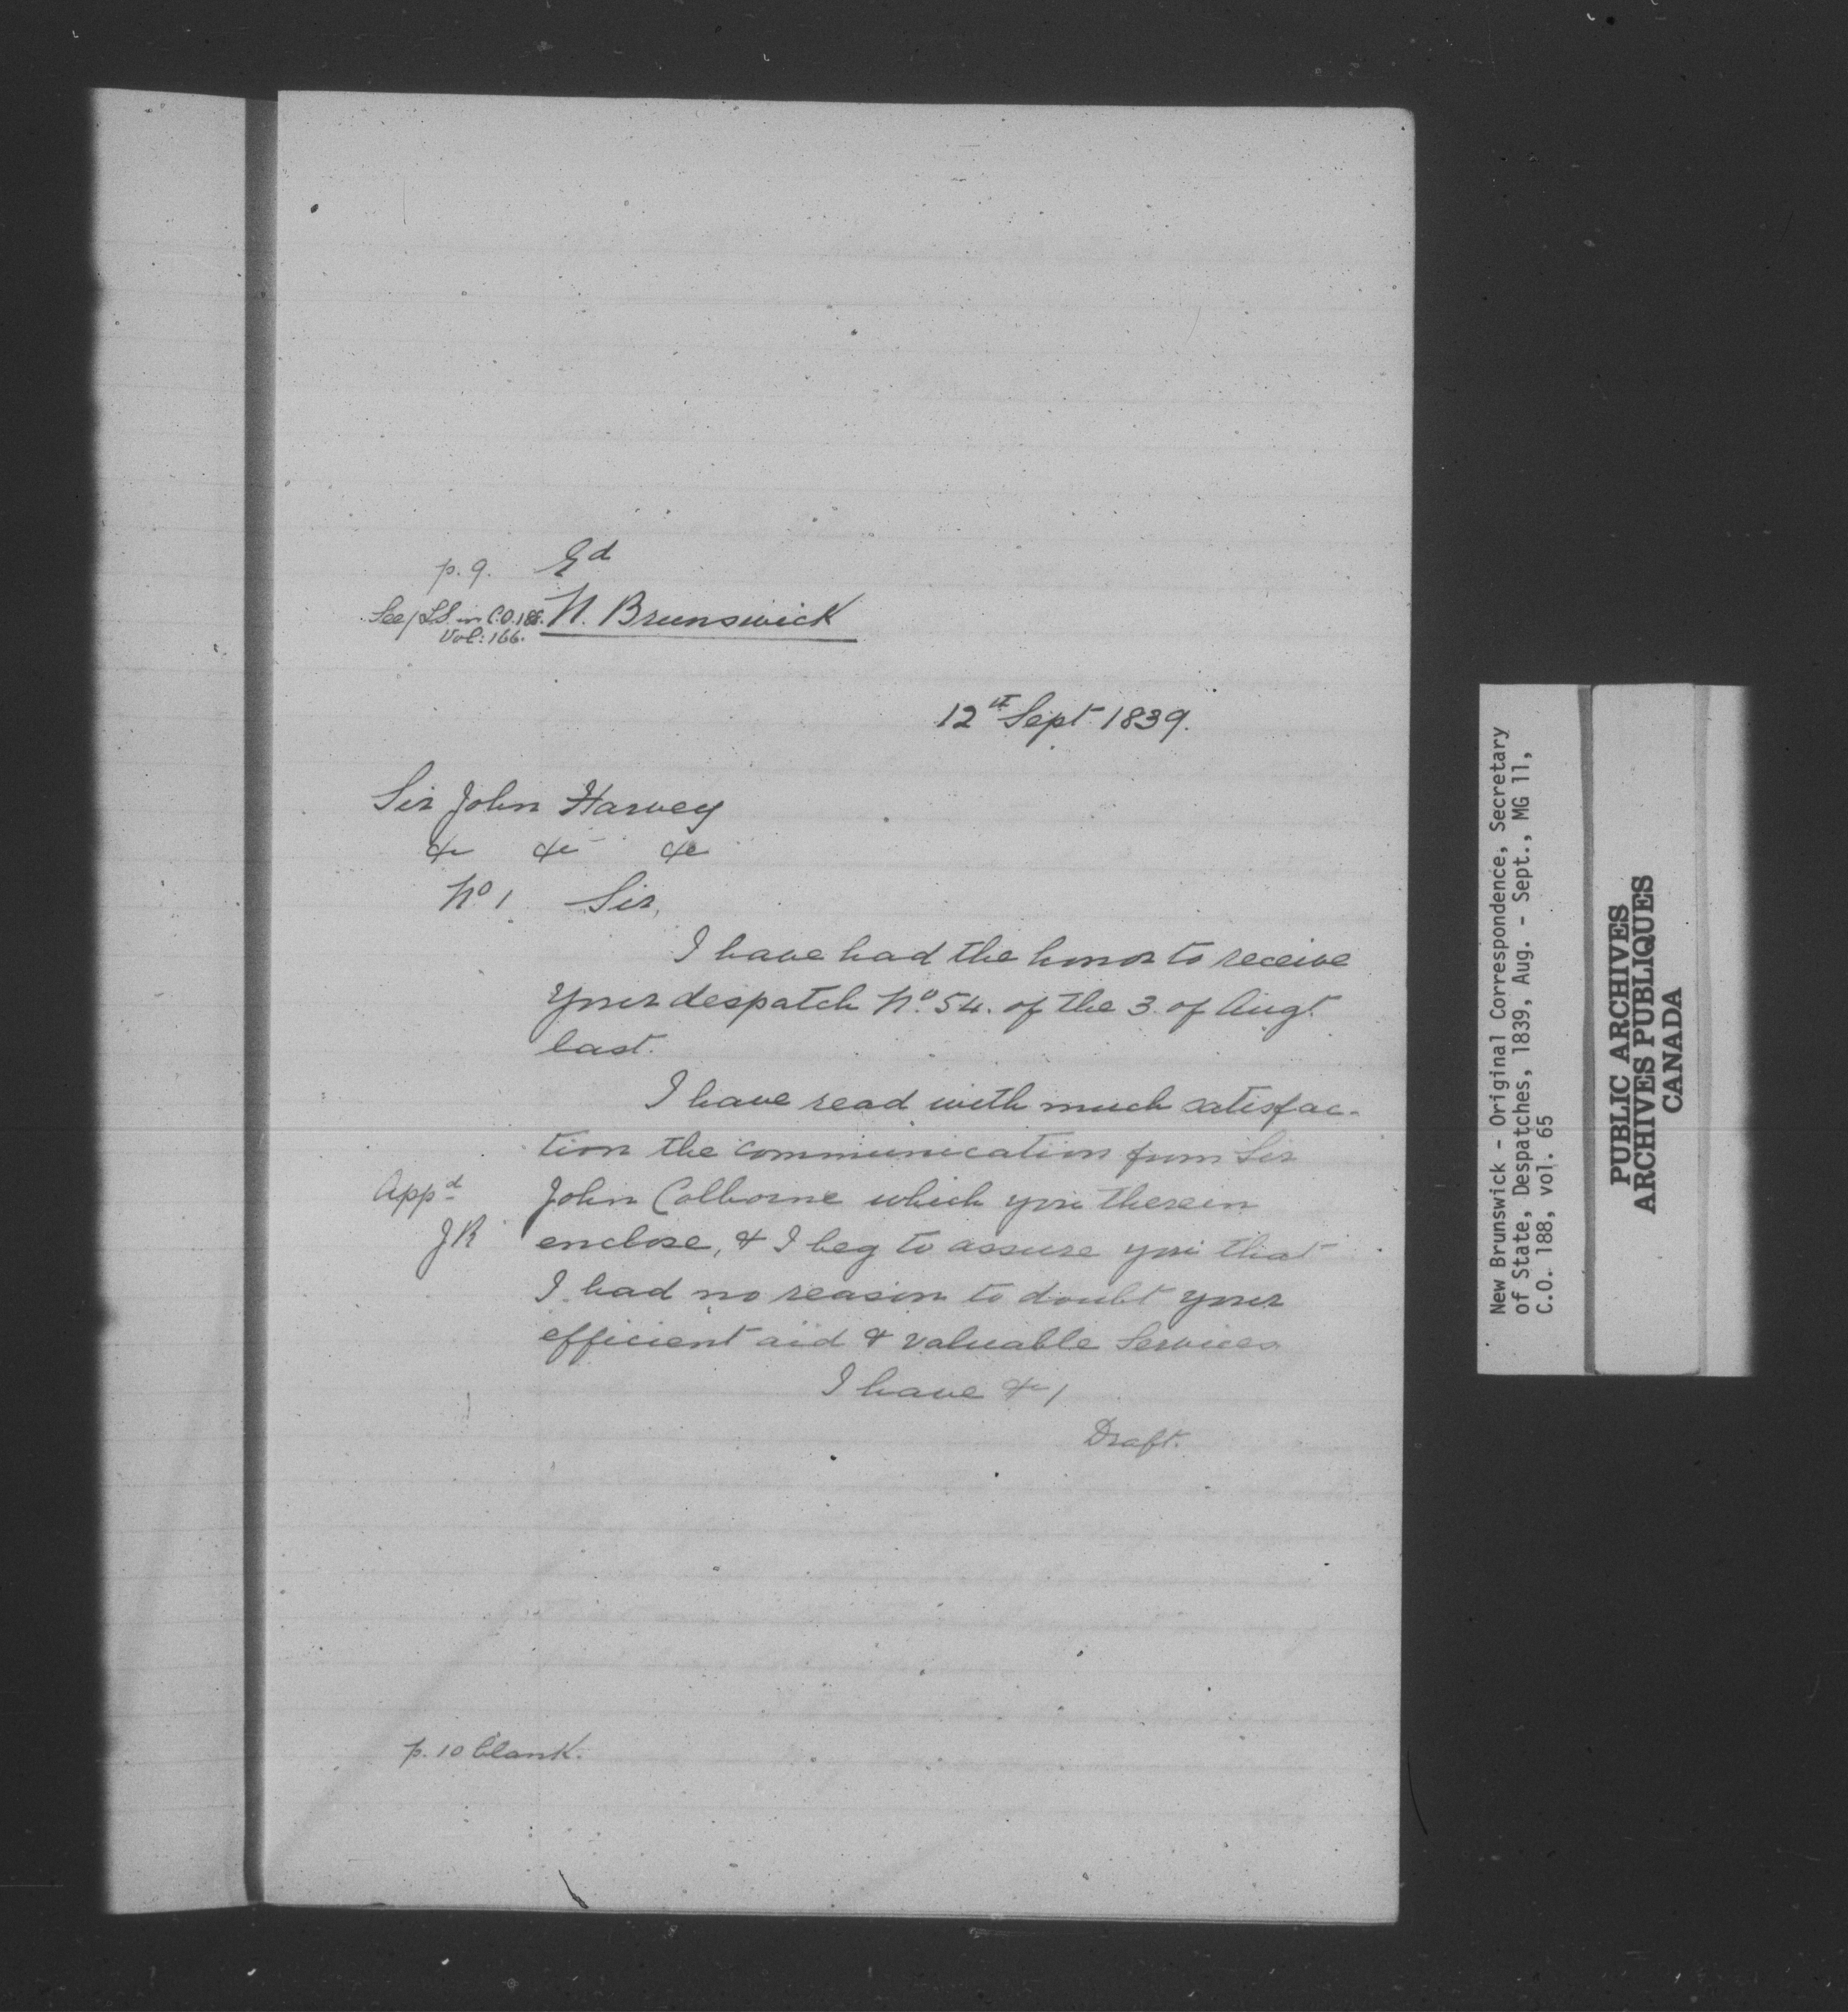 p. 9. Ed
See/LS. in C.O. 188. N. Brunswick
Vol: 166.
12th Sept 1839.
Sir John Harvey
&c &c &c
No 1 Sir,
I have had the honor to receive
your despatch No. 54. of the 3 of Augt
last.
I have read with much satisfac-
tion the communication from Sir
Appd John Colborne which you therein
JR enclose, & I beg to assure you that
I had no reason to doubt your
efficient aid & valuable Services
I have &c/
Draft.
p. 10 blank.
New Brunswick - Original Correspondence, Secretary
of State, Despatches, 1839, Aug. - Sept., MG 11,
C.O. 188, vol. 65
PUBLIC ARCHIVES
ARCHIVES PUBLIQUES
CANADA